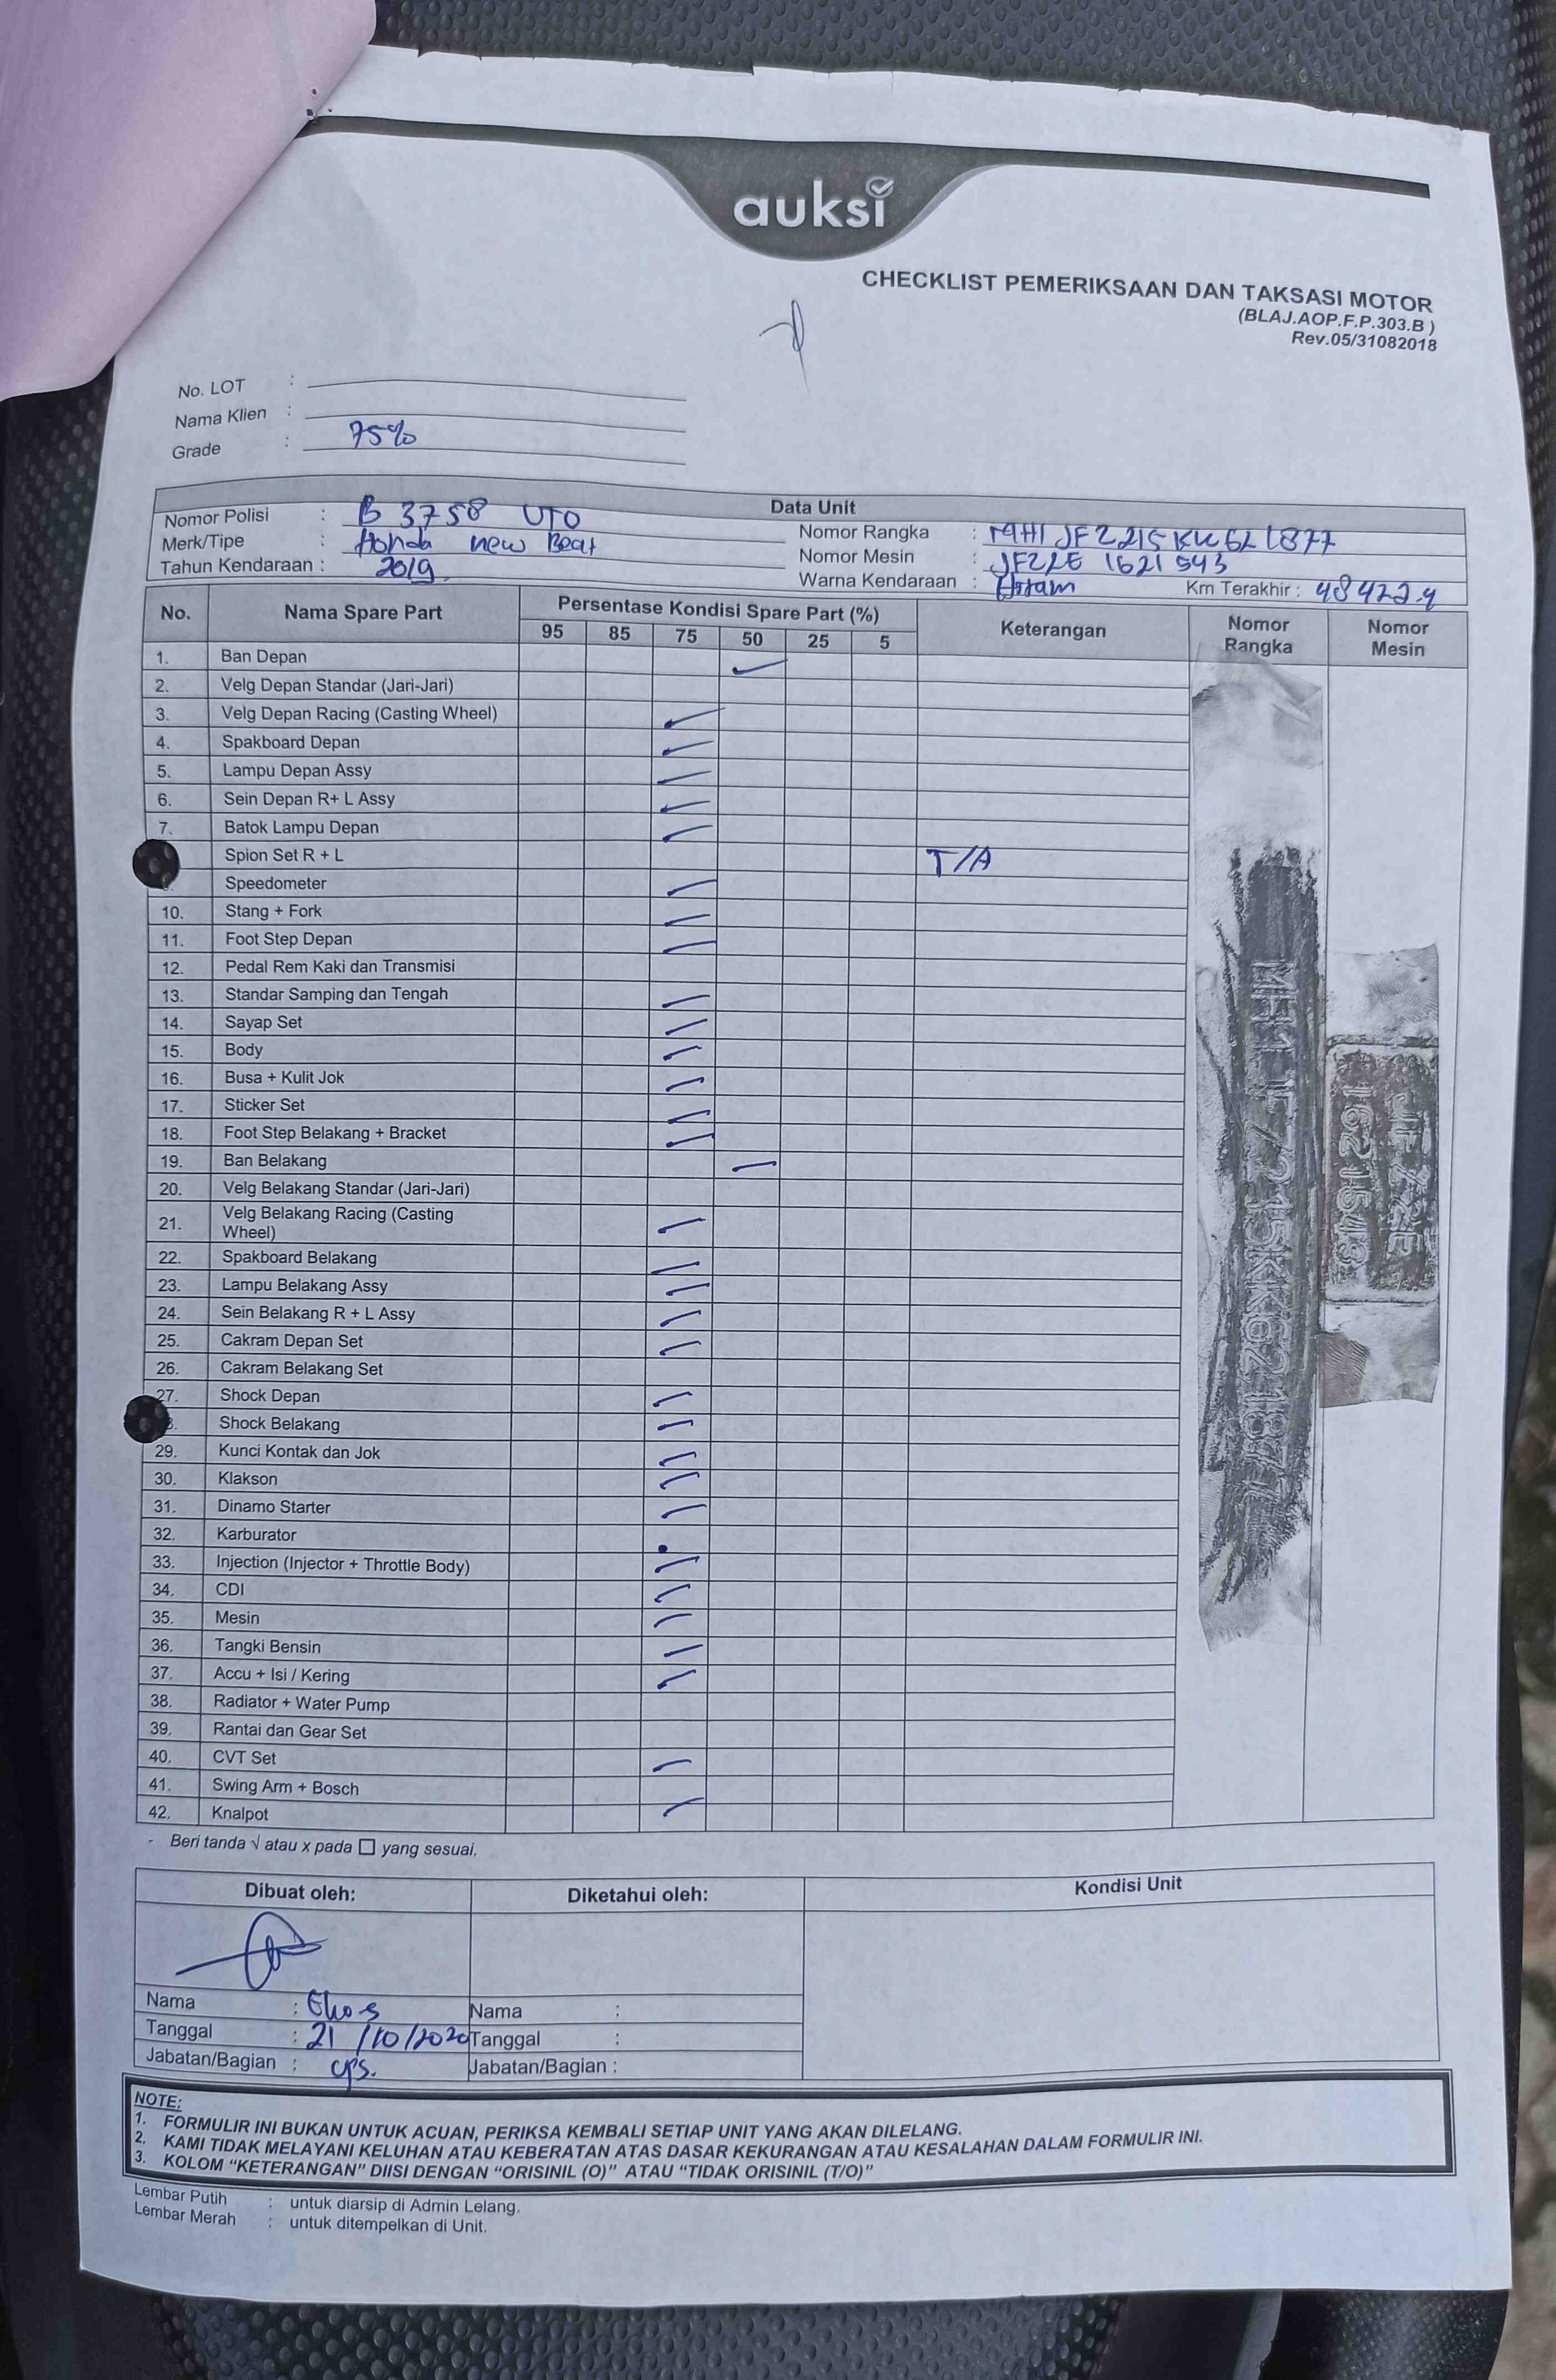 auksi
CHECKLIST PEMERIKSAAN DAN TAKSASI MOTOR
(BLAJ.AOP.F.P.303.B )
Rev.05/31082018
No. LOT :
Nama Klien :
Grade : 75%
Data Unit
Nomor Polisi : B 3758 UTO
Merk/Tipe : Honda new Beat
Tahun Kendaraan : 2019
Nomor Rangka :
Nomor Mesin : JFZ2E 1621543
Warna Kendaraan : Hitam Km Terakhir : 48422.9
No. Nama Spare Part Persentase Kondisi Spare Part (%) Keterangan Nomor Rangka Nomor Mesin
95 85 75 50 25 5
1. Ban Depan ✓
2. Velg Depan Standar (Jari-Jari)
3. Velg Depan Racing (Casting Wheel) ✓
4. Spakboard Depan ✓
5. Lampu Depan Assy ✓
6. Sein Depan R+ L Assy ✓
7. Batok Lampu Depan ✓
Spion Set R + L T/A
Speedometer ✓
10. Stang + Fork ✓
11. Foot Step Depan ✓
12. Pedal Rem Kaki dan Transmisi
13. Standar Samping dan Tengah ✓
14. Sayap Set ✓
15. Body ✓
16. Busa + Kulit Jok ✓
17. Sticker Set ✓
18. Foot Step Belakang + Bracket ✓
19. Ban Belakang ✓
20. Velg Belakang Standar (Jari-Jari)
21. Velg Belakang Racing (Casting
Wheel) ✓
22. Spakboard Belakang ✓
23. Lampu Belakang Assy ✓
24. Sein Belakang R + L Assy ✓
25. Cakram Depan Set ✓
26. Cakram Belakang Set
27. Shock Depan ✓
Shock Belakang ✓
29. Kunci Kontak dan Jok ✓
30. Klakson ✓
31. Dinamo Starter ✓
32. Karburator
33. Injection (Injector + Throttle Body) ✓
34. CDI ✓
35. Mesin ✓
36. Tangki Bensin ✓
37. Accu + Isi / Kering ✓
38. Radiator + Water Pump
39. Rantai dan Gear Set
40. CVT Set ✓
41. Swing Arm + Bosch
42. Knalpot ✓
MH1JFZ215KK621877
JFZ2E
1621543
- Beri tanda √ atau x pada □ yang sesuai.
Dibuat oleh: Diketahui oleh: Kondisi Unit
Nama : Eko S Nama :
Tanggal : 21/10/2020 Tanggal :
Jabatan/Bagian : Jabatan/Bagian :
NOTE:
1. FORMULIR INI BUKAN UNTUK ACUAN, PERIKSA KEMBALI SETIAP UNIT YANG AKAN DILELANG.
2. KAMI TIDAK MELAYANI KELUHAN ATAU KEBERATAN ATAS DASAR KEKURANGAN ATAU KESALAHAN DALAM FORMULIR INI.
3. KOLOM “KETERANGAN” DIISI DENGAN “ORISINIL (O)” ATAU “TIDAK ORISINIL (T/O)”
Lembar Putih : untuk diarsip di Admin Lelang.
Lembar Merah : untuk ditempelkan di Unit.